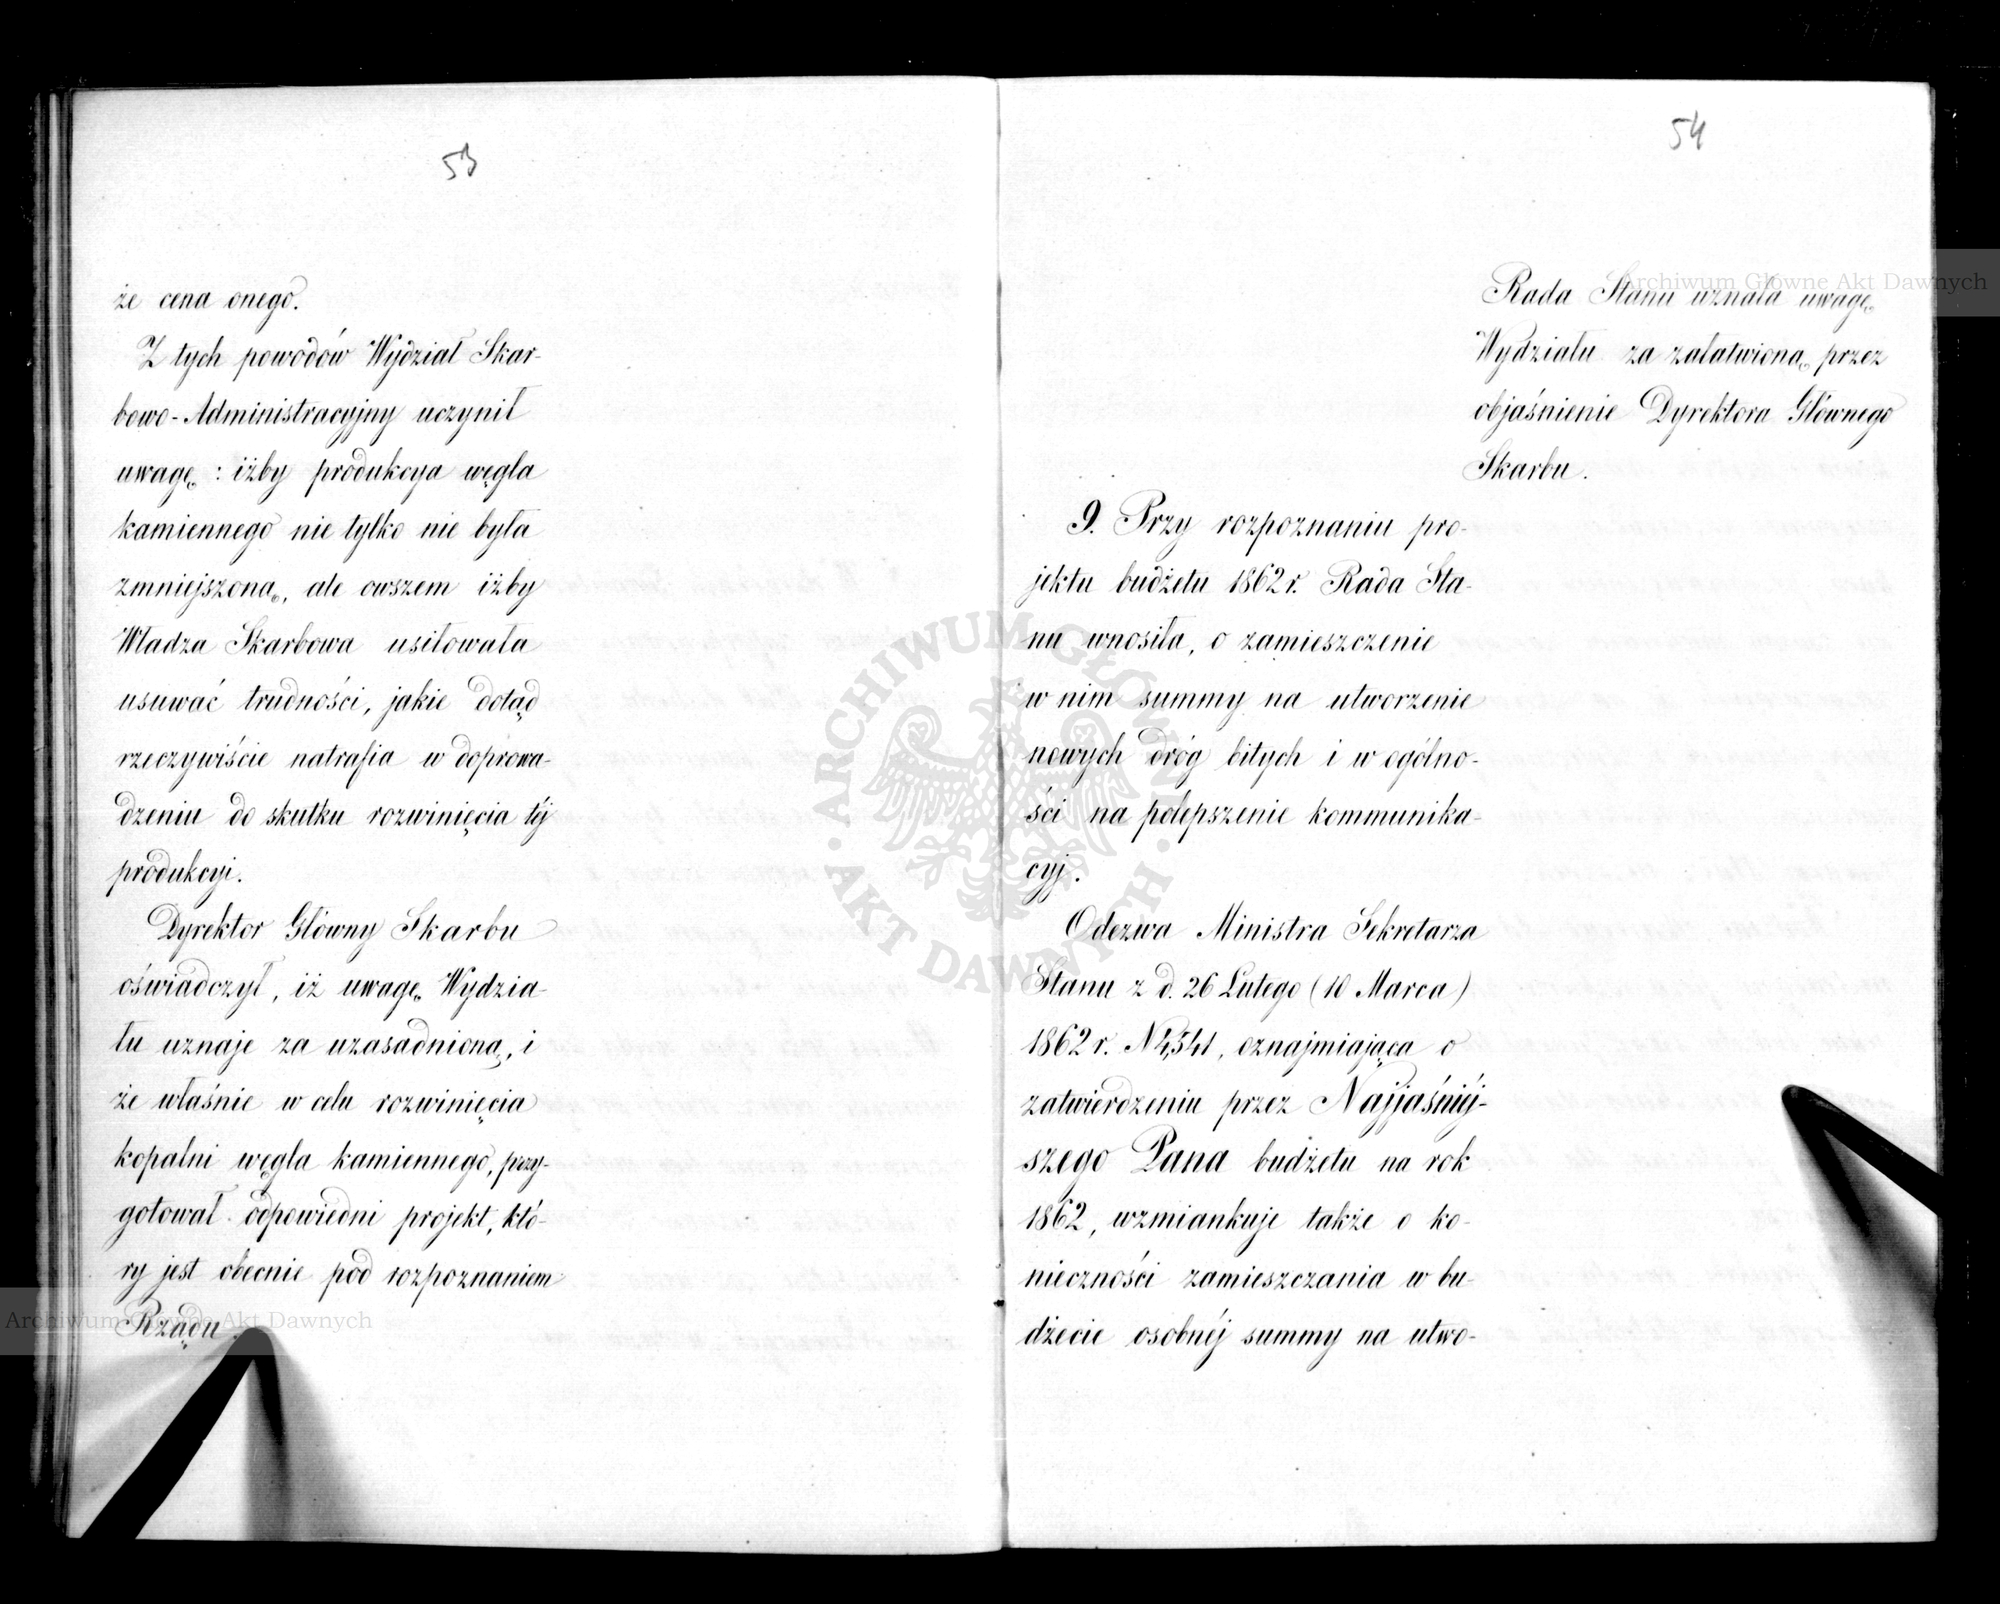 53
że cena onego.
Z tych powodów Wydział Skar-
bowo-Administracyjny uczynił
uwagę: iżby produkcya węgla
kamiennego nie tylko nie była
zmniejszoną, ale owszem iżby
Władza Skarbowa usiłowała
usuwać trudności, jakie dotąd
rzeczywiście natrafia w doprowa-
dzeniu do skutku rozwinięcia téj
produkcyi.
Dyrektor Główny Skarbu
oświadczył, iż uwagę Wydzia-
łu uznaje za uzasadnioną, i
że właśnie w celu rozwinięcia
kopalni węgla kamiennego, przy-
gotował odpowiedni projekt, któ-
ry jest obecnie pod rozpoznaniem
Rządu.
54
Rada Stanu uznała uwagę
Wydziału za załatwioną przez
objaśnienie Dyrektora Głównego
Skarbu.
9. Przy rozpoznaniu pro-
jektu budżetu 1862 r. Rada Sta-
nu wnosiła, o zamieszczenie
w nim summy na utworzenie
nowych dróg bitych i w ogólno-
ści na polepszenie kommunika-
cyj.
Odezwa Ministra Sekretarza
Stanu z d. 26 Lutego (10 Marca)
1862 r. N 4,341, oznajmiająca o
zatwierdzeniu przez Najjaśniéj-
szego Pana budżetu na rok
1862, wzmiankuje także o ko-
nieczności zamieszczania w bu-
dżecie osobnéj summy na utwo-
ARCHIWUM GŁÓWNE AKT DAWNYCH
Archiwum Główne Akt Dawnych
Archiwum Główne Akt Dawnych